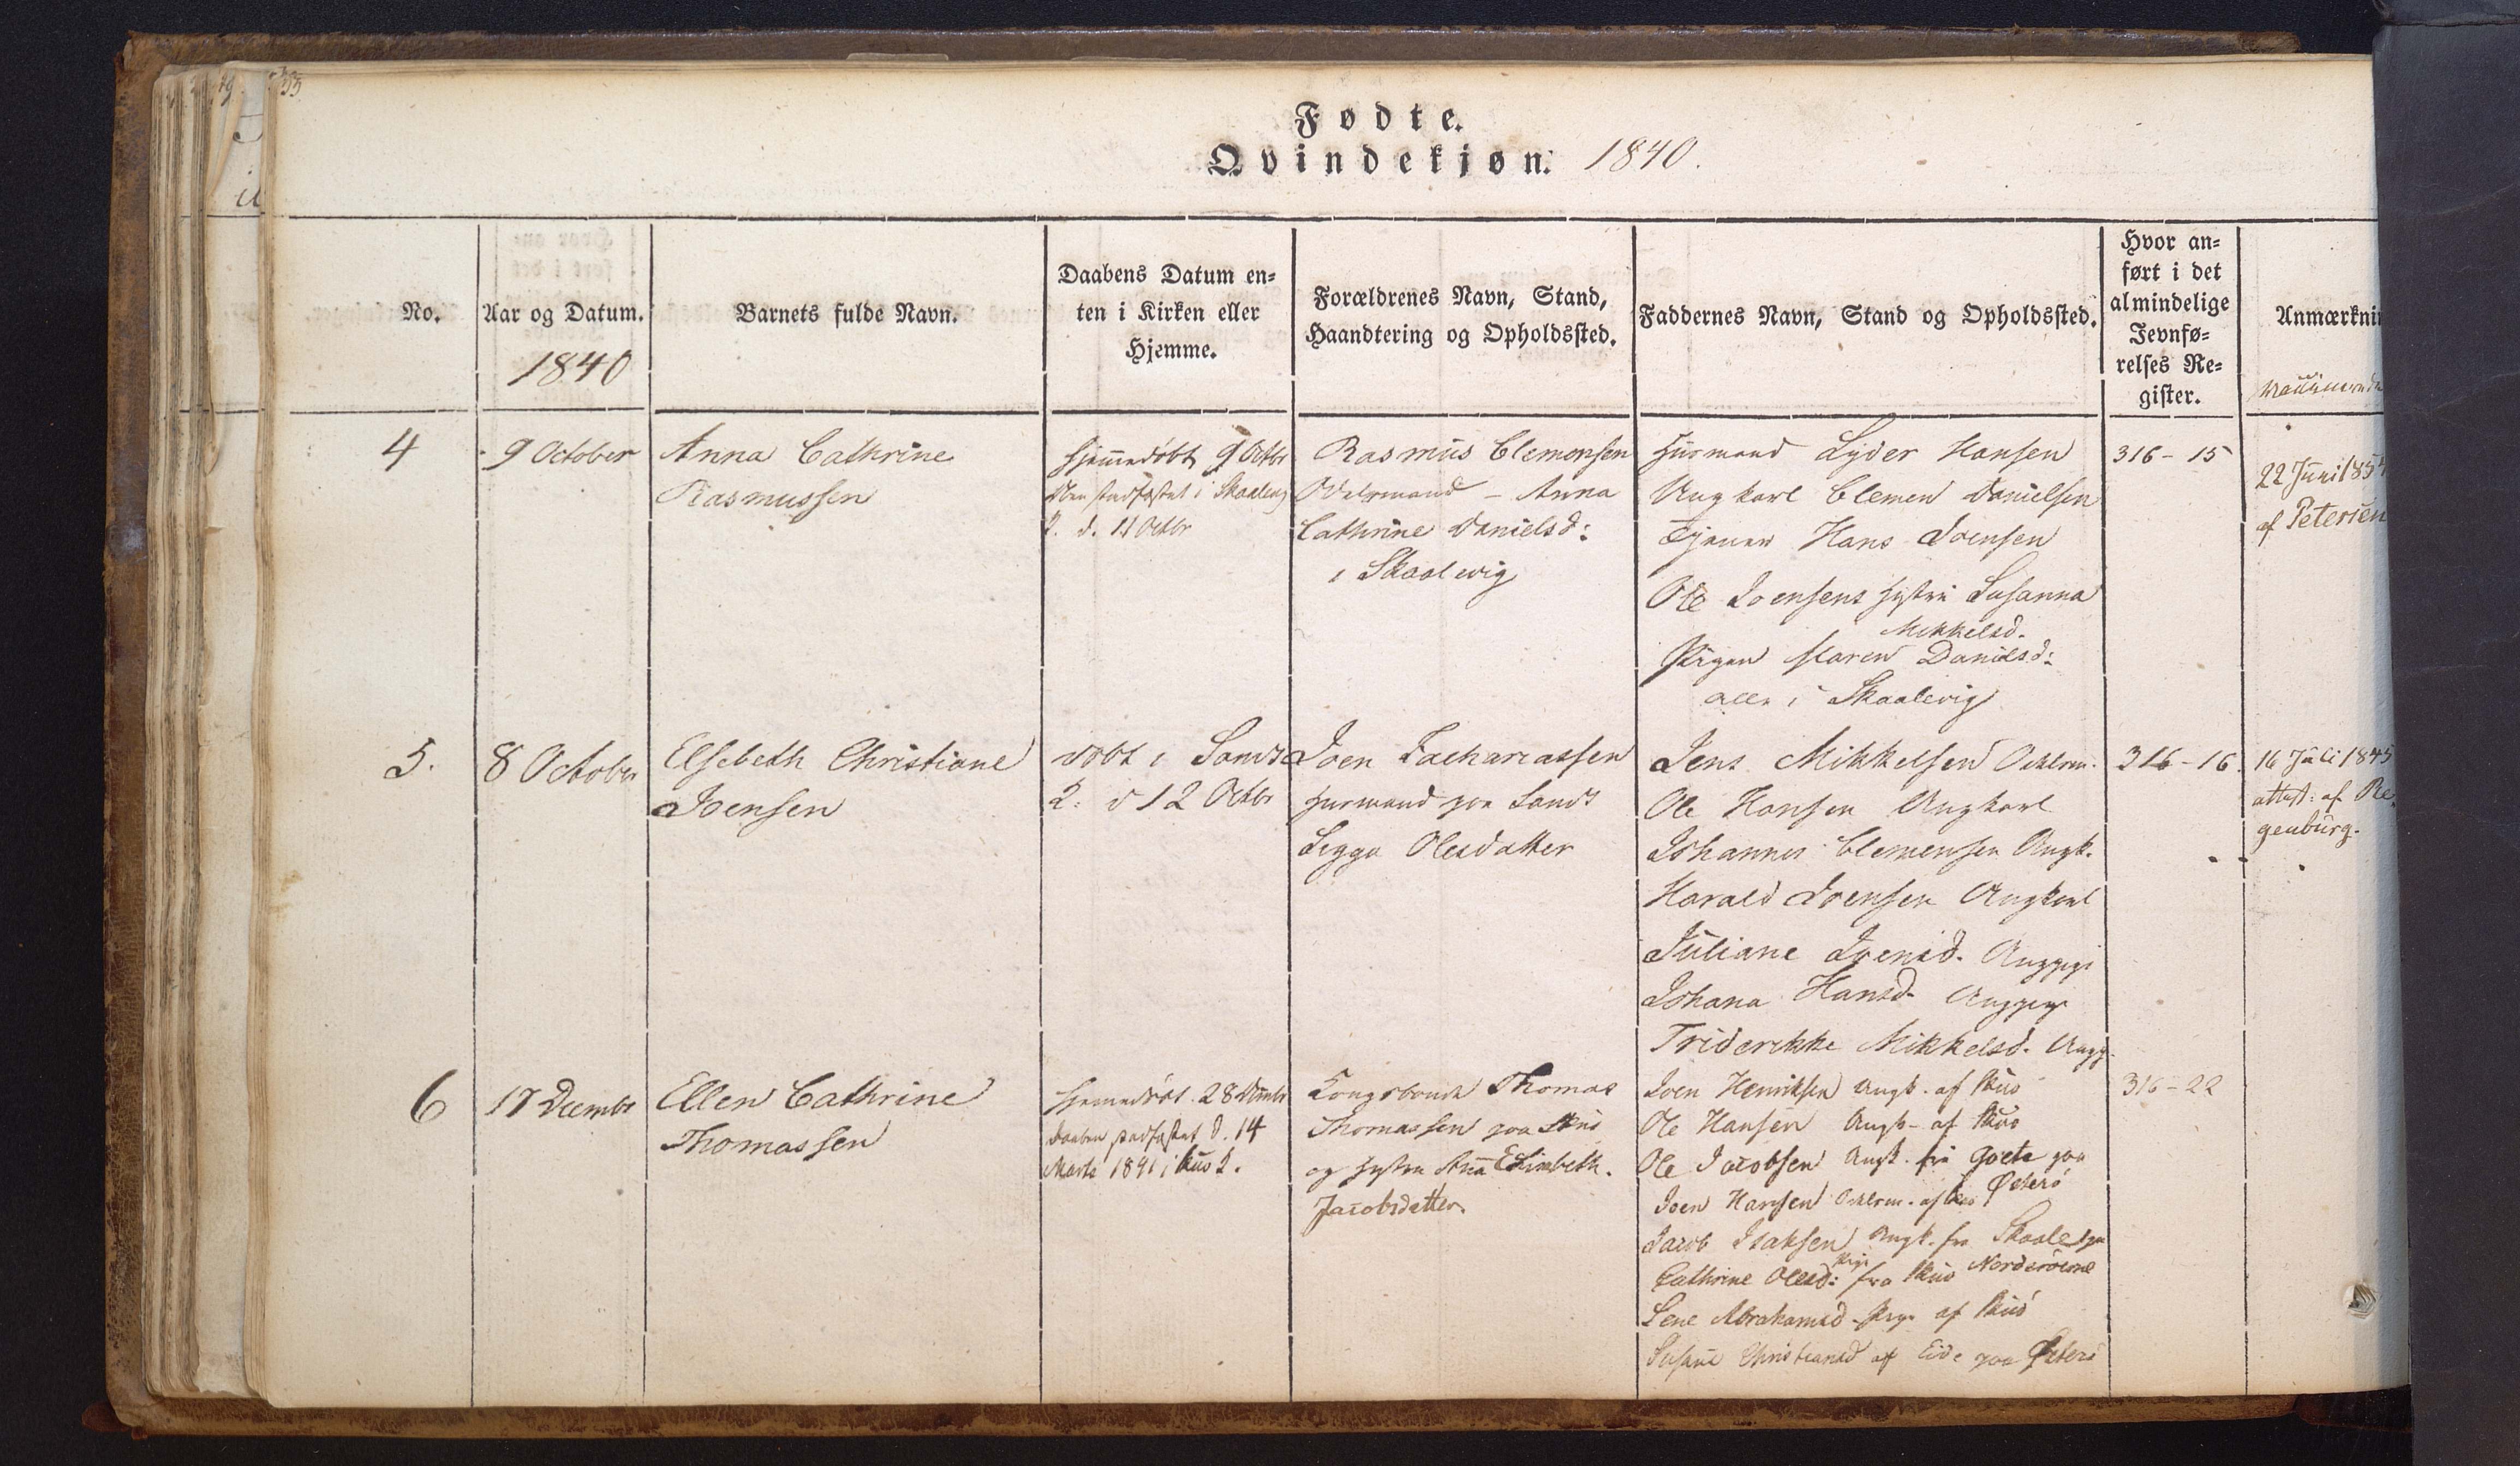 Fødte.
Qvindekjøn. 1840.
No.
Aar og Datum.
1840
Barnets fulde Navn.
Daabens Datum en-
ten i Kirken eller
Hjemme.
Forældrenes Navn, Stand,
Haandtering og Opholdssted.
Faddernes Navn, Stand og Opholdssted.
Hvor an-
ført i det
almindelige
Jevnfø-
relses Re-
gister.
Anmærknin
4
9 October
Anna Cathrine
Rasmussen
hjemmedøbt 9 Octbr
stadfæstet i Skaalevig
K. d. 11 Octbr
Rasmus Clemensen
Odelsmand - Anna
Cathrine Danielsd:
i Skaalevig
Huusmand Lyder Hansen
Ungkarl Clemen Danielsen
Tjener Hans Joensen
Ole Joensens Hustru Susanna
Mikkelsd.
Pigen Maren Danielsd:
alle i Skaalevig
316 - 15
22 Juni 185
af Petersen
5.
8 October
Elsebeth Christiane
Joensen
døbt i Sands
K. d 12 Octbr
Joen Zachariassen
Huusmand paa Sand
Sigga Olesdatter
Jens Mikkelsen Odelsm.
Ole Hansen Ungkarl
Johannes Clemensen Ungk.
Harald Joensen Ungkarl
Juliane Joensd. Ungpige
Johana Hansd. Ungpige
Friderikke Mikkelsd. Ungp.
316 - 16.
16 Juli 1845
attest: af Re
genburg.
6
17 Decembr
Ellen Cathrine
Thomassen
hjemmedøbt 28 Decmbr
Daaben stadfæstet d. 14
Marts 1841 i Huus K.
Kongsbonde Thomas
Thomassen paa Skuø
og Hustru Ana Elisabeth
Jacobsdatter.
Joen Henriksen Ungk. af Skuø
Ole Hansen Ungk. af Skuø
Ole Jacobsen Ungk. fra Goete paa
Østerø
Joen Hansen Odelsm. af Skuø
Jacob Isaksen Ungk. fra Skaale paa
Norderøerne
Cathrine Olesd: Pige fra Skuø
Lene Abrahamsd. Pige af Skuø
Susane Christiansd af Eide paa Østerø
316 - 22